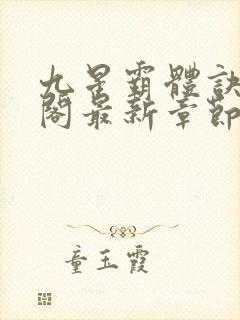 九星霸體訣
閣最新章節
童玉霞